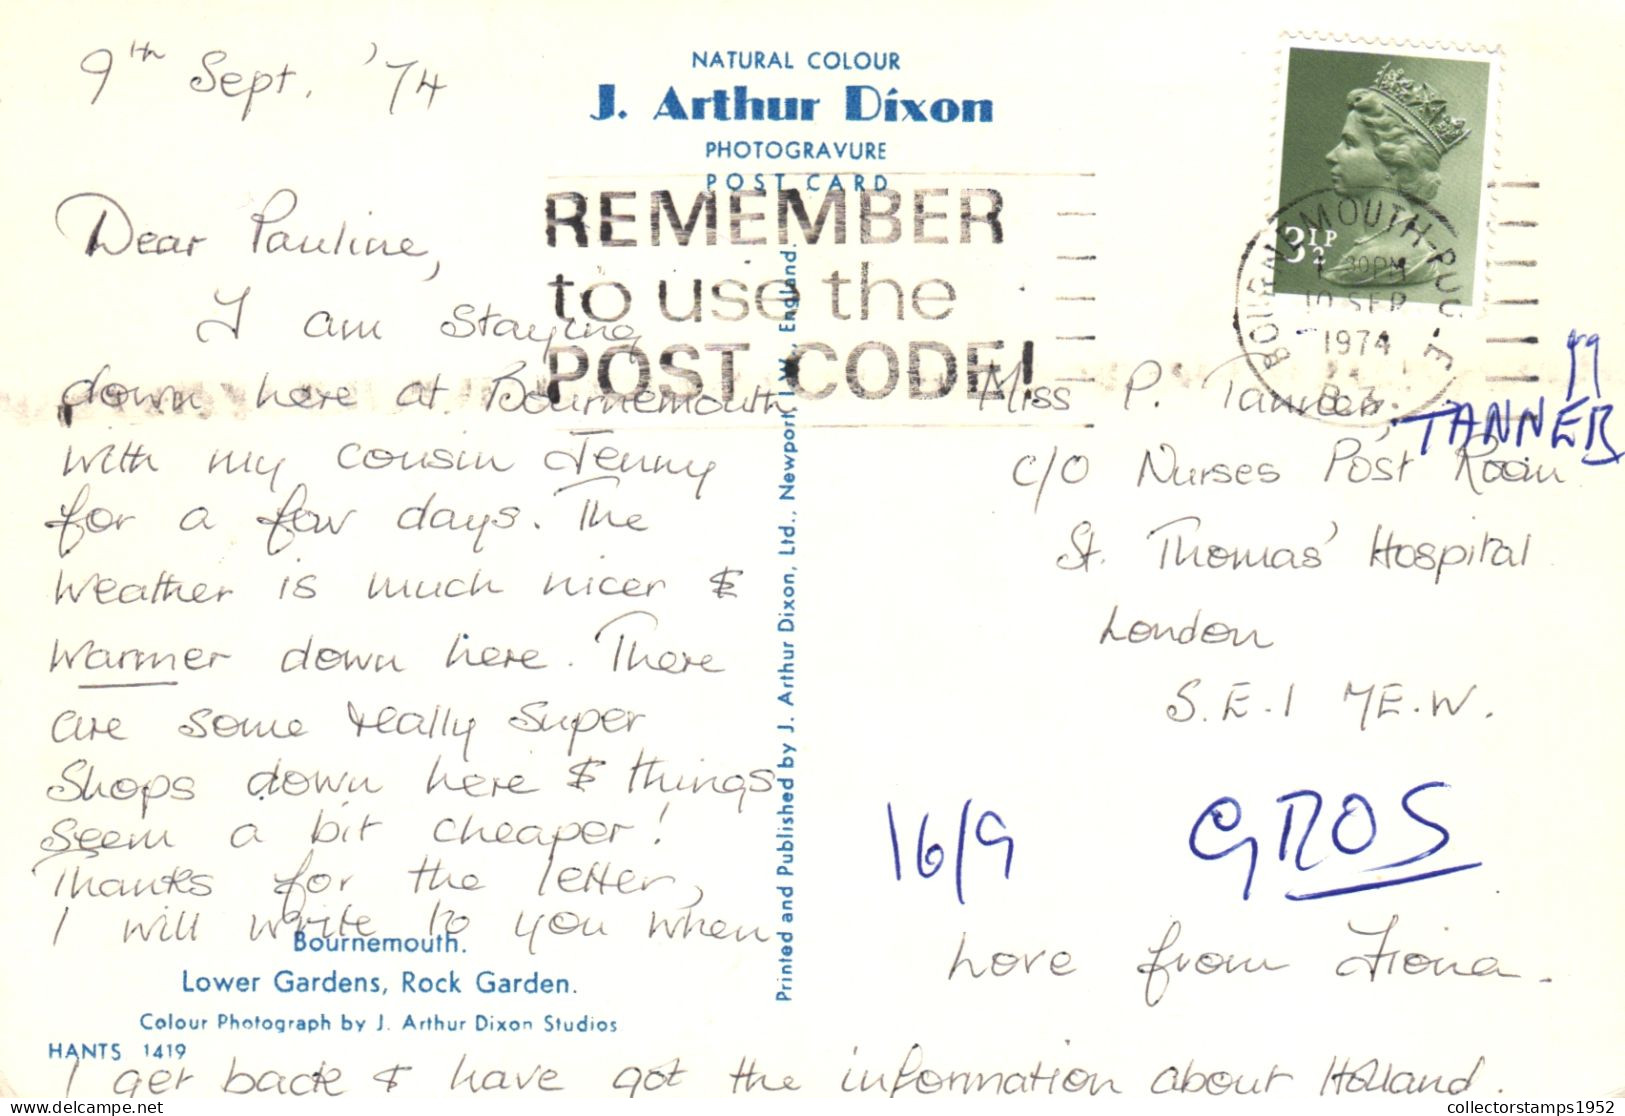 9th Sept. '74
Dear Pauline,
I am staying
down here at Bournemouth
with my cousin Jenny
for a few days. The
weather is much nicer &
warmer down here. There
are some really super
shops down here & things
seem a bit cheaper!
Thanks for the letter,
I will write to you when
I get back & have got the information about Holland.
Love from Fiona.
Bournemouth.
Lower Gardens, Rock Garden.
Colour Photograph by J. Arthur Dixon Studios
HANTS 1419
NATURAL COLOUR
J. Arthur Dixon
PHOTOGRAVURE
POST CARD
REMEMBER
to use the
POST CODE!
Printed and Published by J. Arthur Dixon, Ltd., Newport, I.W., England.
3½P
BOURNEMOUTH-POOLE
30PM
10 SEP
1974
Miss P. Tanner,
TANNER
c/o Nurses Post Room
St. Thomas' Hospital
London
S.E.1 7E.W.
16/9
GROS
collectorstamps1952